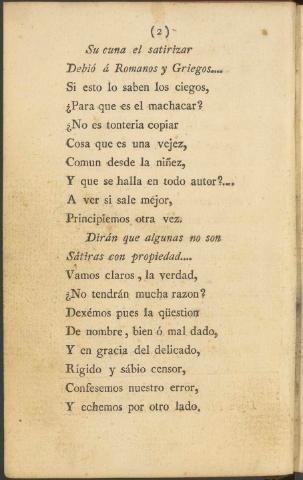 (2)
Su cuna el satirizar
Debió á Romanos y Griegos....
Si esto lo saben los ciegos,
¿Para que es el machacar?
¿No es tonteria copiar
Cosa que es una vejez,
Comun desde la niñez,
Y que se halla en todo autor?....
A ver si sale mejor,
Principiemos otra vez.
Dirán que algunas no son
Sátiras con propiedad....
Vamos claros, la verdad,
¿No tendrán mucha razon?
Dexémos pues la qüestion
De nombre, bien ó mal dado,
Y en gracia del delicado,
Rigido y sábio censor,
Confesemos nuestro error,
Y echemos por otro lado.